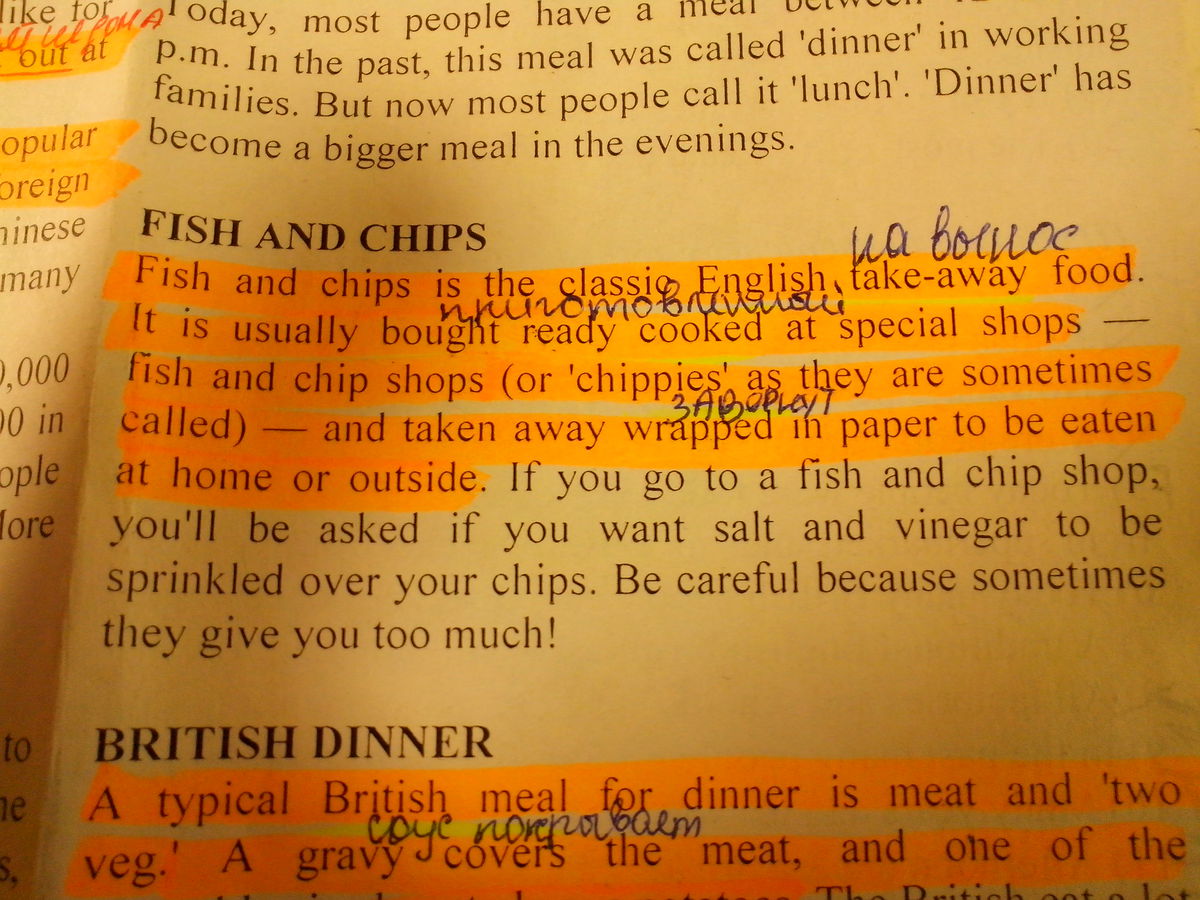 like for
out at
opular
oreign
hinese
many
0,000
00 in
ople
More
to
he
s,
Today, most people have a meal between
p.m. In the past, this meal was called 'dinner' in working
families. But now most people call it 'lunch'. 'Dinner' has
become a bigger meal in the evenings.
FISH AND CHIPS
на вынос
Fish and chips is the classic English take-away food.
приготовленной
It is usually bought ready cooked at special shops —
fish and chip shops (or 'chippies' as they are sometimes
завернут
called) — and taken away wrapped in paper to be eaten
at home or outside. If you go to a fish and chip shop,
you'll be asked if you want salt and vinegar to be
sprinkled over your chips. Be careful because sometimes
they give you too much!
BRITISH DINNER
A typical British meal for dinner is meat and 'two
соус покрывает
veg.' A gravy covers the meat, and one of the
The British eat a lot